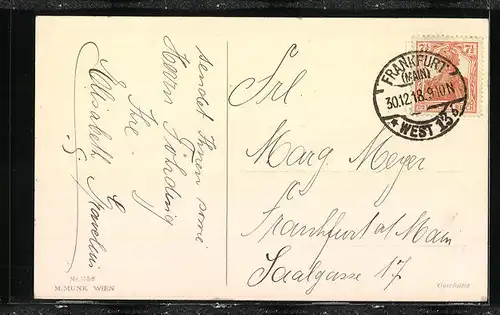 sendet Ihnen sowie
Herrn
Ihre
Elisabeth
Nr. 1156
M. MUNK WIEN
7½ 7½
FRANKFURT
(MAIN)
30.12.18.9-10N
* WEST 13 b.
Frl.
Marg Meyer
Frankfurt a/Main
Saalgasse 17
Geschützt